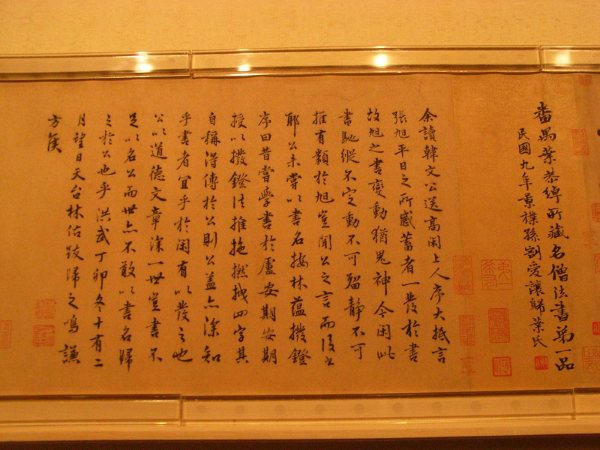 番禺葉恭綽所藏名僧法書第一品
民國九年景樸孫割愛讓歸葉氏
余讀韓文公送高閑上人序大抵言
張旭平日之所感蓄者一發於書
故旭之書變動猶鬼神今閑此
書馳縱不定動不可留靜不可
推有類於旭豈聞公之言而後也
耶公未嘗以書名按林蘊撥鐙
序曰昔嘗學書於盧安期安期
授以撥鐙法推拖撚拽四字其
自稱得傳於公則公蓋亦深知
乎書者宜乎於閑有以發之也
公以道德文章深一世豈書不
足以名公而世亦不敢以書名歸
之於公也乎洪武丁卯冬十有二
月望日天台林佑跋歸之鳥謙
方廣